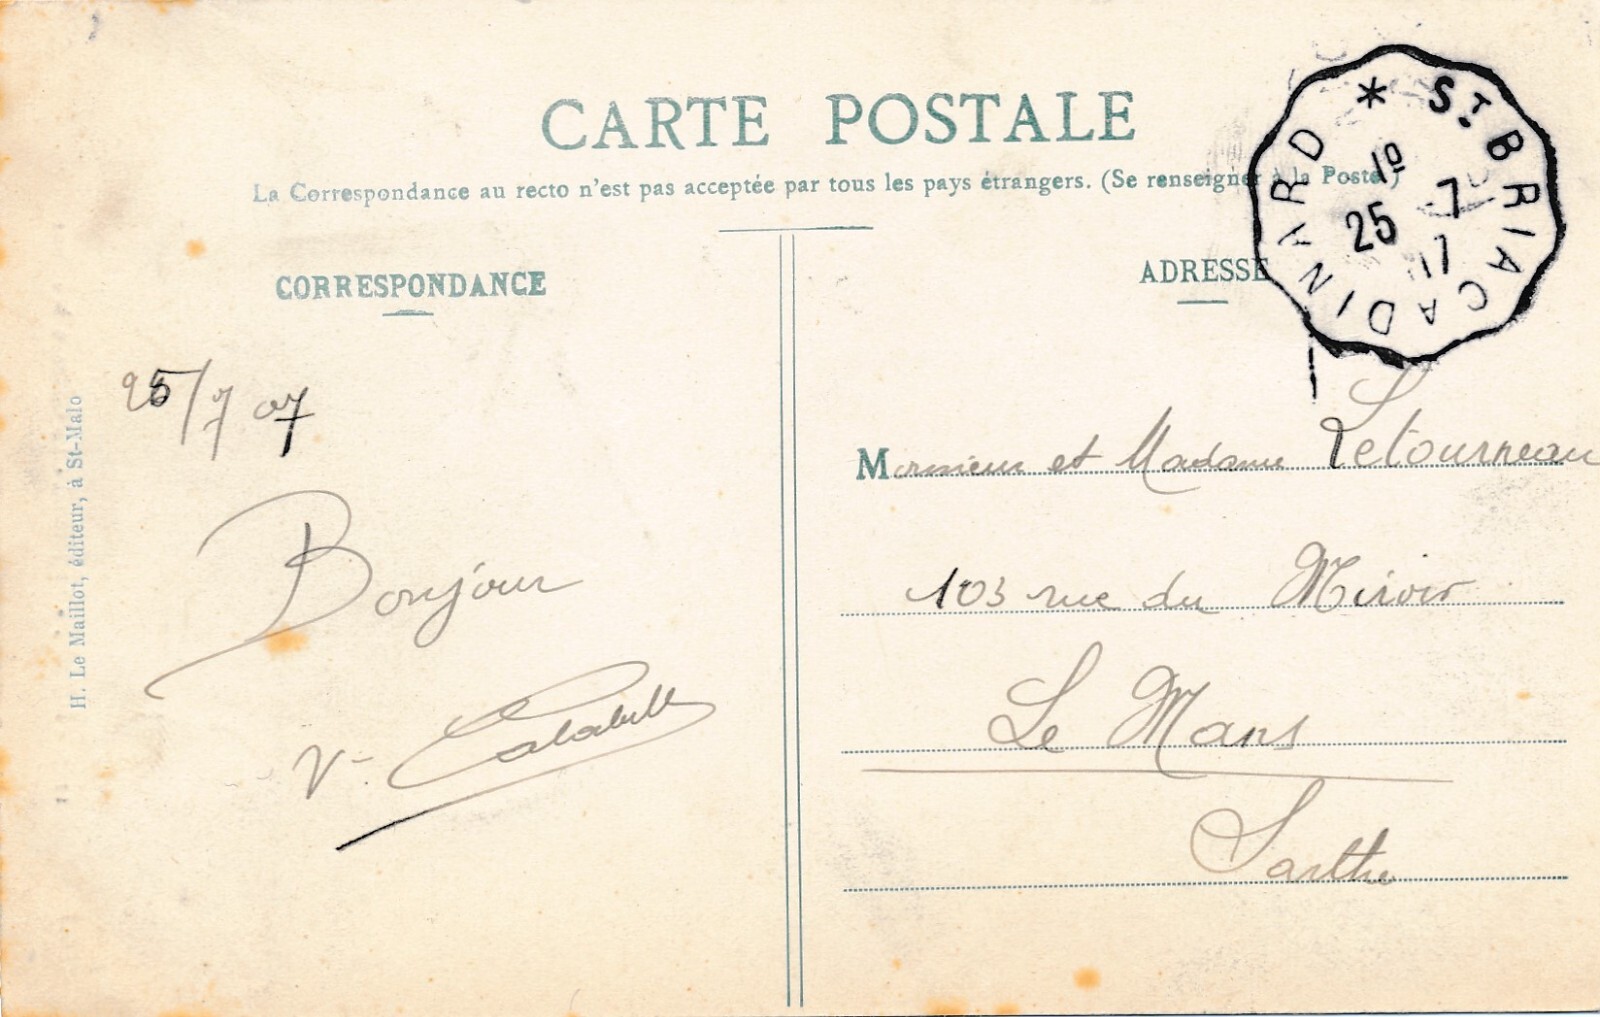 CARTE POSTALE
La Correspondance au recto n'est pas acceptée par tous les pays étrangers. (Se renseigner à la Poste)
CORRESPONDANCE
25/7 07
Bonjour
V.
H. Le Maillot, éditeur, à St-Malo
ADRESSE
ST. BRIAC A DINARD *
25 -7
Monsieur et Madame Letourneau
103 rue du Miroir
Le Mans
Sarthe